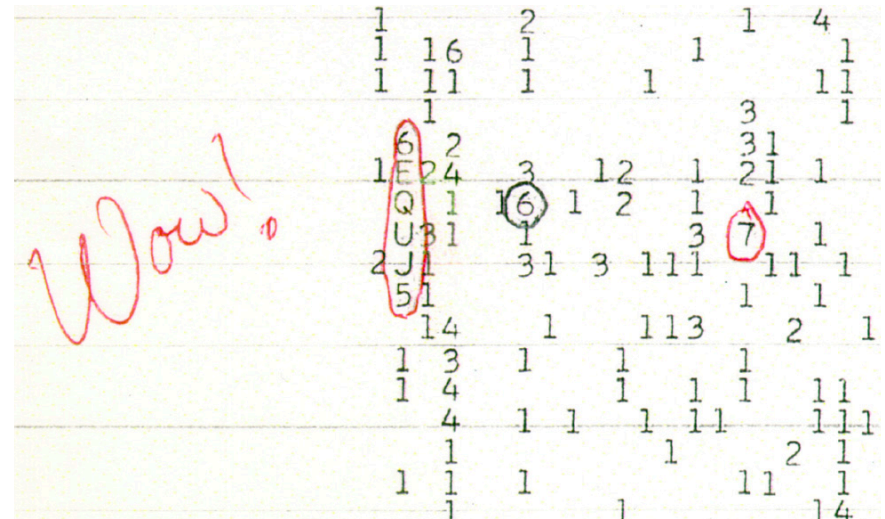 1 2 1 4
1 16 1 1 1
1 11 1 1 11
1 3 1
6 2 31
1 E24 3 12 1 21 1
Q 1 16 1 2 1 1
Wow! U31 1 3 7 1
2 J1 31 3 111 11 1
51 1 1
14 1 113 2 1
1 3 1 1 1
1 4 1 1 1 11
4 1 1 1 11 111
1 1 2 1
1 1 1 11 1
1 1 14